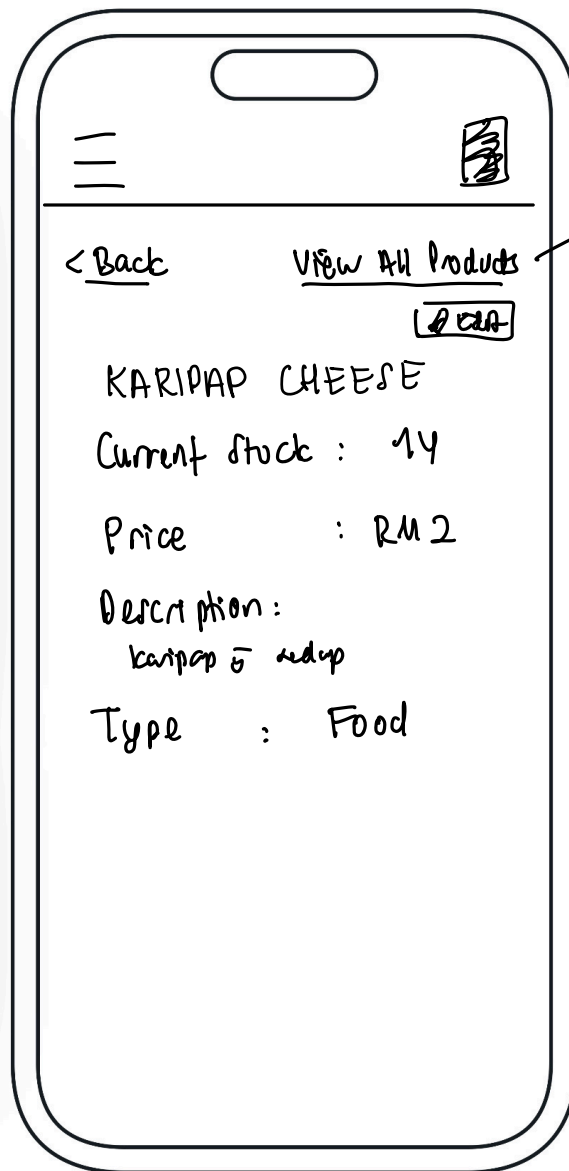 < Back View All Products
KARIPAP CHEESE
Current Stock : 14
Price : RM 2
Description:
karipap sedap
Type : Food